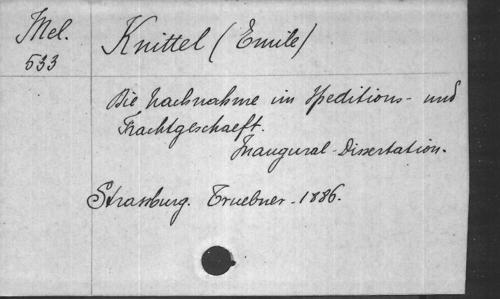 Mel.
533
Knittel (Emile)
Die Nachnahme im Speditions- und
Frachtgeschaeft.
Inaugural-Dissertation.
Strassburg. Truebner. 1886.